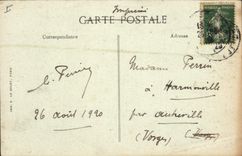 Imprimé
CARTE POSTALE
Correspondance
Adresse
Madame Perrin
à Harmonville
par Autreville
(Vosges)
26 août 1920